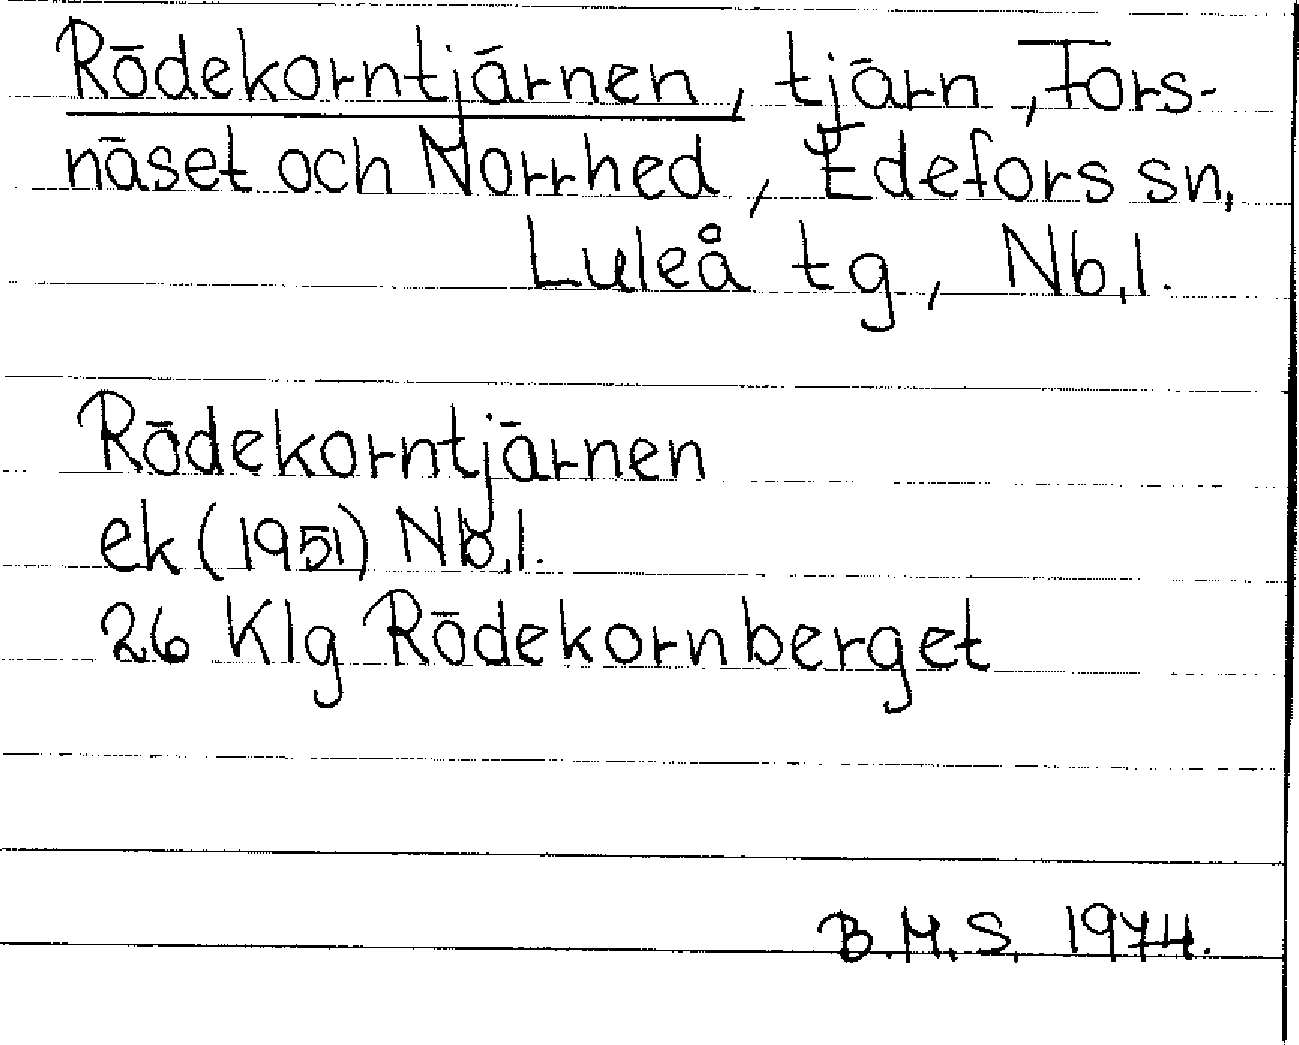 Rödekorntjärnen, tjärn, Fors-
näset och Norrhed, Edefors sn,
Luleå tg, Nb.l.
Rödekorntjärnen
ek (1951) Nb.l.
26 Klg Rödekornberget
B.M.S. 1974.